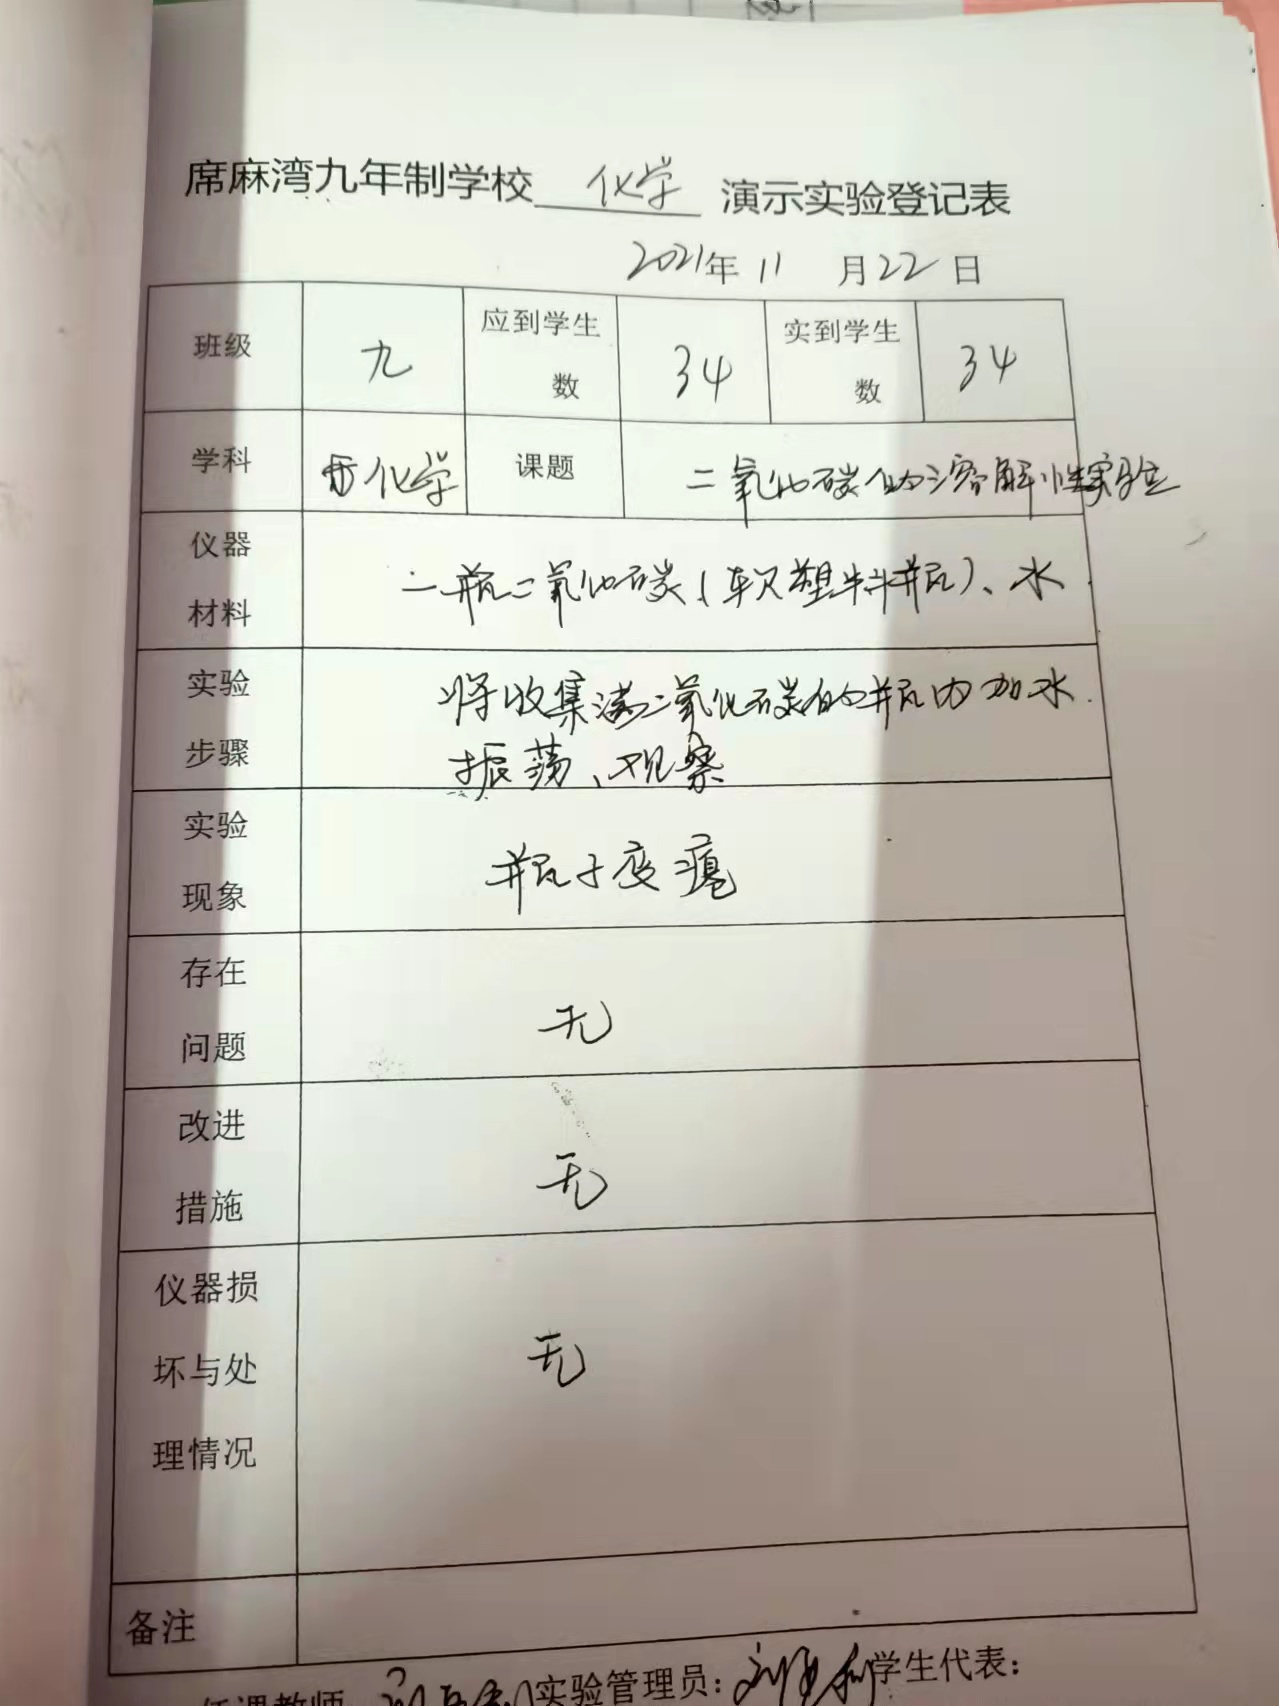 席麻湾九年制学校 化学 演示实验登记表
2021年 11 月 22 日
班级 九 应到学生数 34 实到学生数 34
学科 化学 课题 二氧化碳的溶解性实验
仪器材料 一瓶二氧化碳(软塑料瓶)、水
实验步骤 将收集满二氧化碳的瓶内加水
振荡、观察
实验现象 瓶子变瘪
存在问题 无
改进措施 无
仪器损坏与处理情况 无
备注
任课教师 实验管理员: 学生代表: